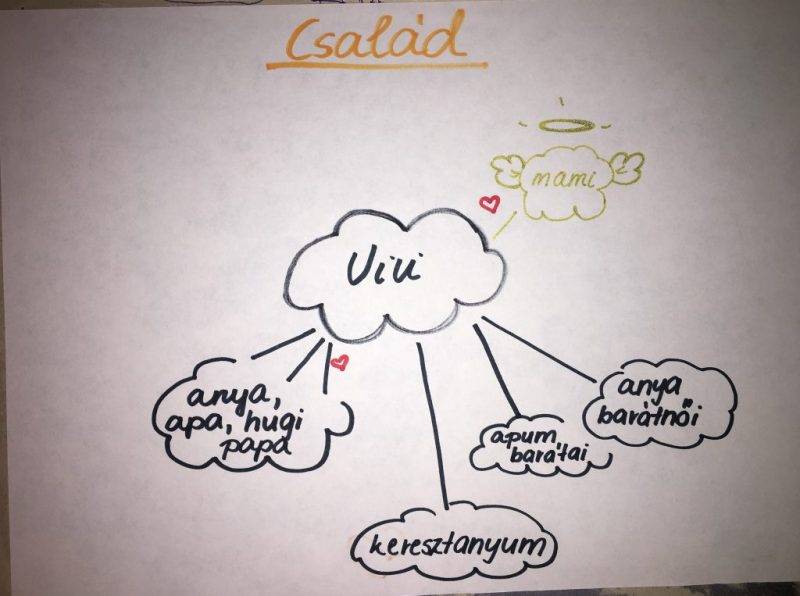 Család
mami
Vivi
anya,
apa, hugi
papa
anya
barátnői
apum
barátai
keresztanyum